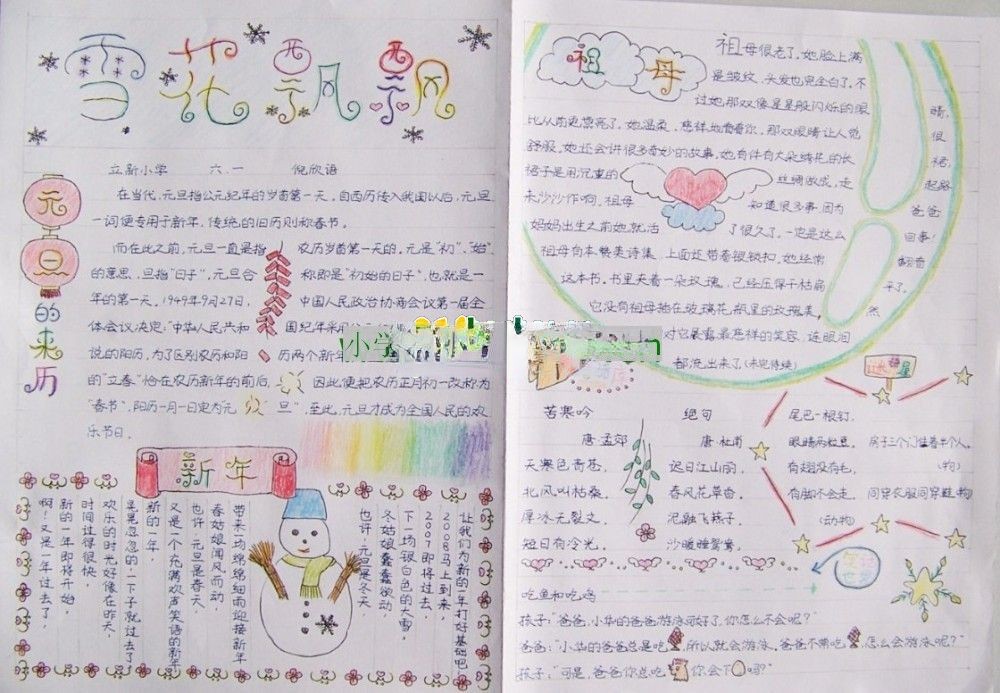 雪花飘飘
立新小学 六.一 倪欣语
元旦的来历
在当代,元旦指公元纪年的岁首第一天,自西历传入我国以后,元旦
一词便专用于新年,传统的旧历则称春节。
而在此之前,元旦一直是指农历岁首第一天的。元是"初"、"始"
的意思,旦指"日子",元旦合称即是"初始的日子",也就是一
年的第一天。1949年9月27日,中国人民政治协商会议第一届全
体会议决定:"中华人民共和国纪年采用
说的阳历,为了区别农历和阳历两个新年
的"立春"恰在农历新年的前后,因此便把农历正月初一改称为
"春节",阳历一月一日定为元旦",至此,元旦才成为全国人民的欢
乐节日。
新年
让我们为新的一年打好基础吧
2008马上到来,
2007即将过去,
下一场银白色的大雪,
冬姑娘蠢蠢欲动
也许,元旦是冬天,
带来一场绵绵细雨迎接新年
春姑娘闻风而动
也许,元旦是春天,
又是一个充满欢声笑语的新年
新的一年,
一下子就过去了,
欢乐的时光好像在昨天,
时间过得很快,
新的一年即将开始,
啊!又是一年过去了,
祖母
祖母很老了,她脸上满
是皱纹,头发也完全白了,不
过她那双像星星般闪烁的眼睛,
比从前更漂亮了,她温柔,慈祥地看着你,那双眼睛让人觉很
舒服,她还会讲很多奇妙的故事,她有件有大朵绣花的长裙,
裙子是用沉重的丝绸做成,走起路
来沙沙作响,祖母知道很多事,因为爸爸
妈妈出生之前她就活了很久了,一定是这么回事!
祖母有本赞美诗集,上面还带着银锁扣,她经常翻看
这本书,书里夹着一朵玫瑰,已经压得干枯扁平了,
它没有祖母插在玻璃花瓶里的玫瑰美,然
对它展露最慈祥的笑容,连眼泪
都流出来了。(未完待续)
小学
苦寒吟
唐·孟郊
天寒色青苍,
北风叫枯桑,
厚冰无裂文,
短日有冷光。
绝句
唐·杜甫
迟日江山丽,
春风花草香,
泥融飞燕子,
沙暖睡鸳鸯。
尾巴一根钉,
眼睛两粒豆,
有翅没有毛,
有脚不会走。
(动物)
房子三个门住着半个人。
(物)
同穿衣服同穿鞋(物)
笑话世界
吃鱼和吃鸡
孩子:"爸爸,小华的爸爸游泳可好了,你怎么不会呢?"
爸爸:"小华的爸爸总是吃,所以就会游泳,爸爸不常吃,怎么会游泳呢?"
孩子:"可是,爸爸你总吃你会下吗?"